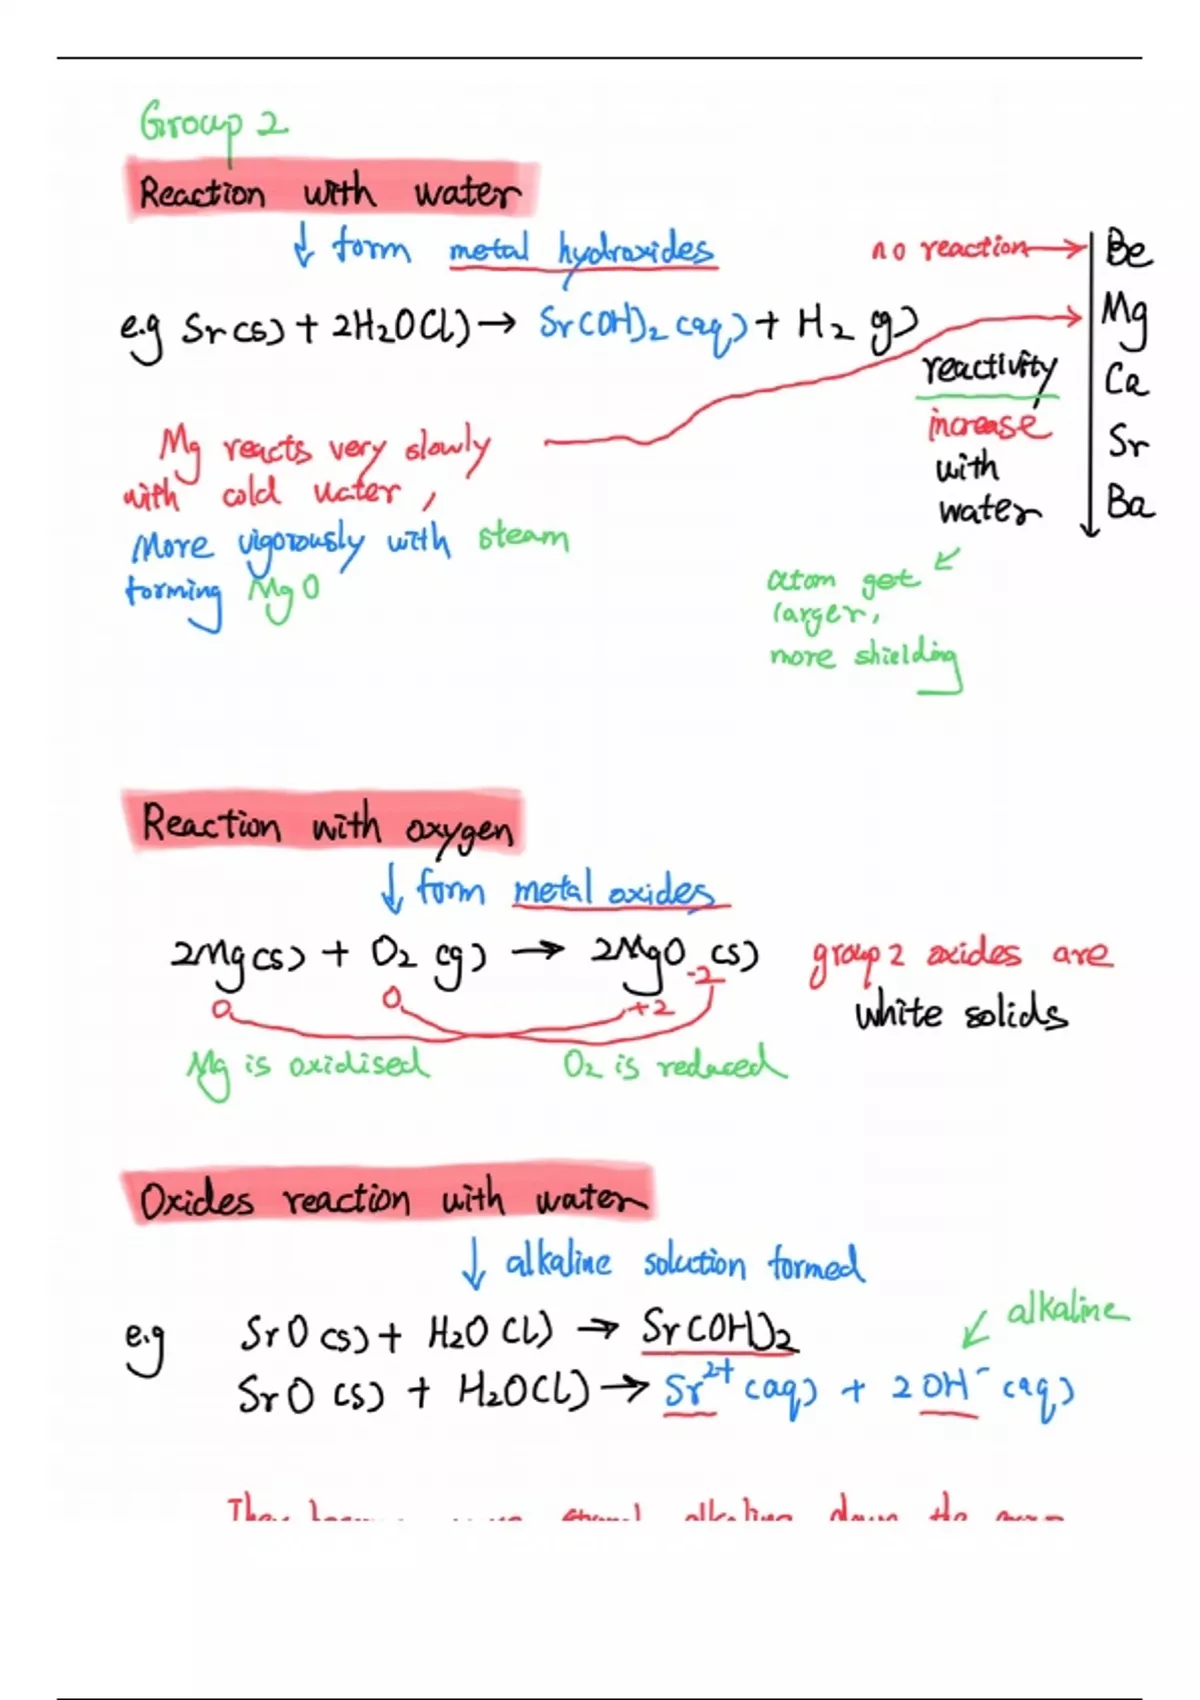 Group 2
Reaction with water
↓ form metal hydroxides
no reaction → Be
e.g Sr(s) + 2H2O(l) → Sr(OH)2 (aq) + H2 (g)
Mg
reactivity
Ca
increase
Sr
with
water
Ba
Mg reacts very slowly
with cold water,
More vigorously with steam
forming MgO
atom get
larger,
more shielding
Reaction with oxygen
↓ form metal oxides
2Mg(s) + O2 (g) → 2MgO (s)
0 0 +2 -2
group 2 oxides are
white solids
Mg is oxidised O2 is reduced
Oxides reaction with water
↓ alkaline solution formed
alkaline
e.g SrO (s) + H2O (l) → Sr(OH)2
SrO (s) + H2O(l) → Sr2+ (aq) + 2OH- (aq)
They alkaline down the